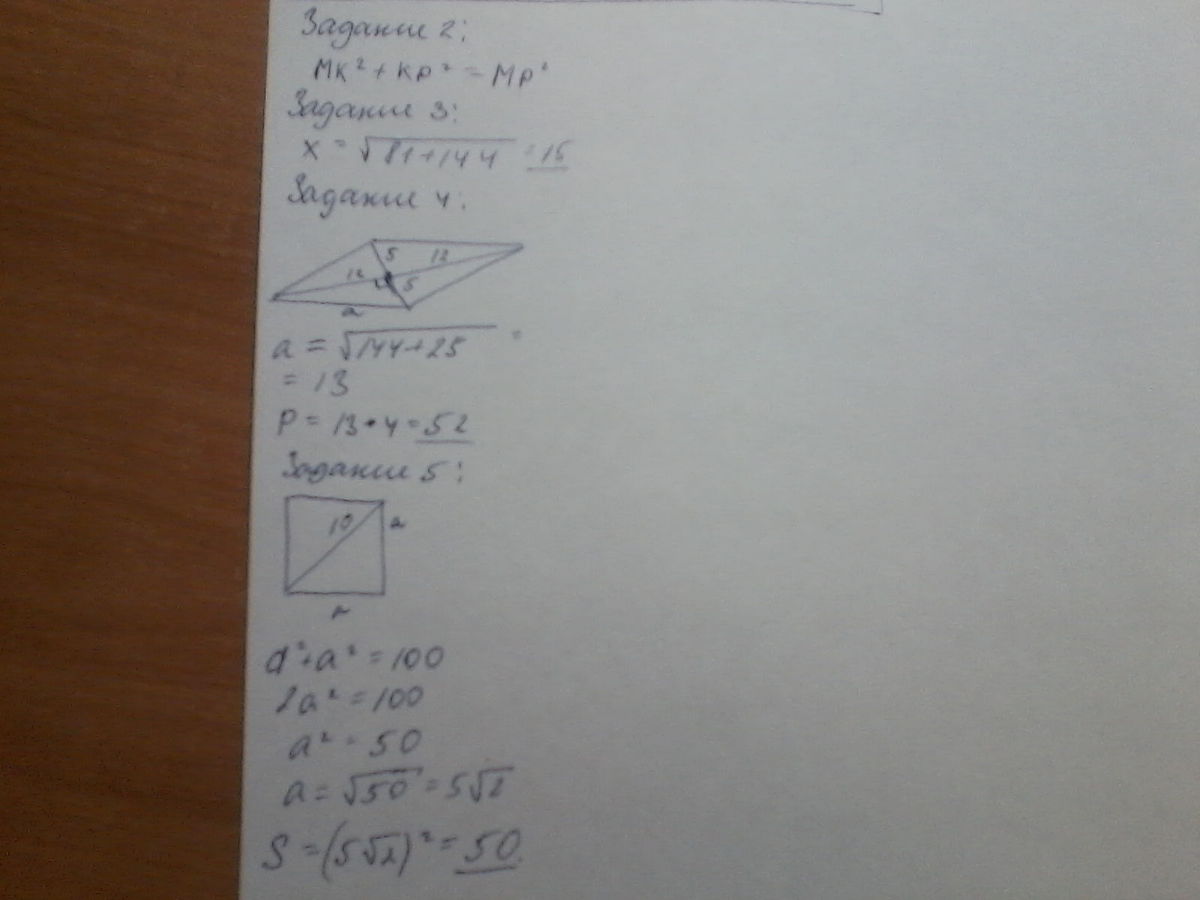 Задание 2:
MK² + KP² = MP²
Задание 3:
x = √81+144 = 15
Задание 4:
5
12
12
5
a
a = √144+25 =
= 13
P = 13 • 4 = 52
Задание 5:
10
a
a
a²+a² = 100
2a² = 100
a² = 50
a = √50 = 5√2
S = (5√2)² = 50